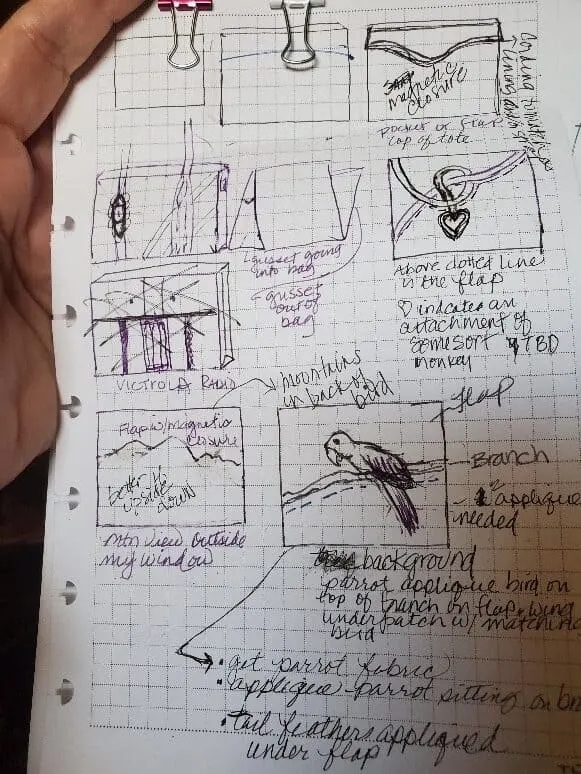 magnetic
closure
Cording to match
lining
pocket or flap
top of tote
gusset going
into bag
gusset
out of
bag
Above dotted line
is the flap
♡ indicates an
attachment of
some sort
monkey TBD
VICTROLA RADIO
mountains
in back of
bird
flap
Flap w/magnetic
closure
better
upside
down
mtn view outside
my window
Branch
applique
needed
background
parrot applique bird on
top of branch on flap, wing
under patch w/ matching
bird
• get parrot fabric
• applique - parrot sitting on
• tail feathers appliqued
under flap